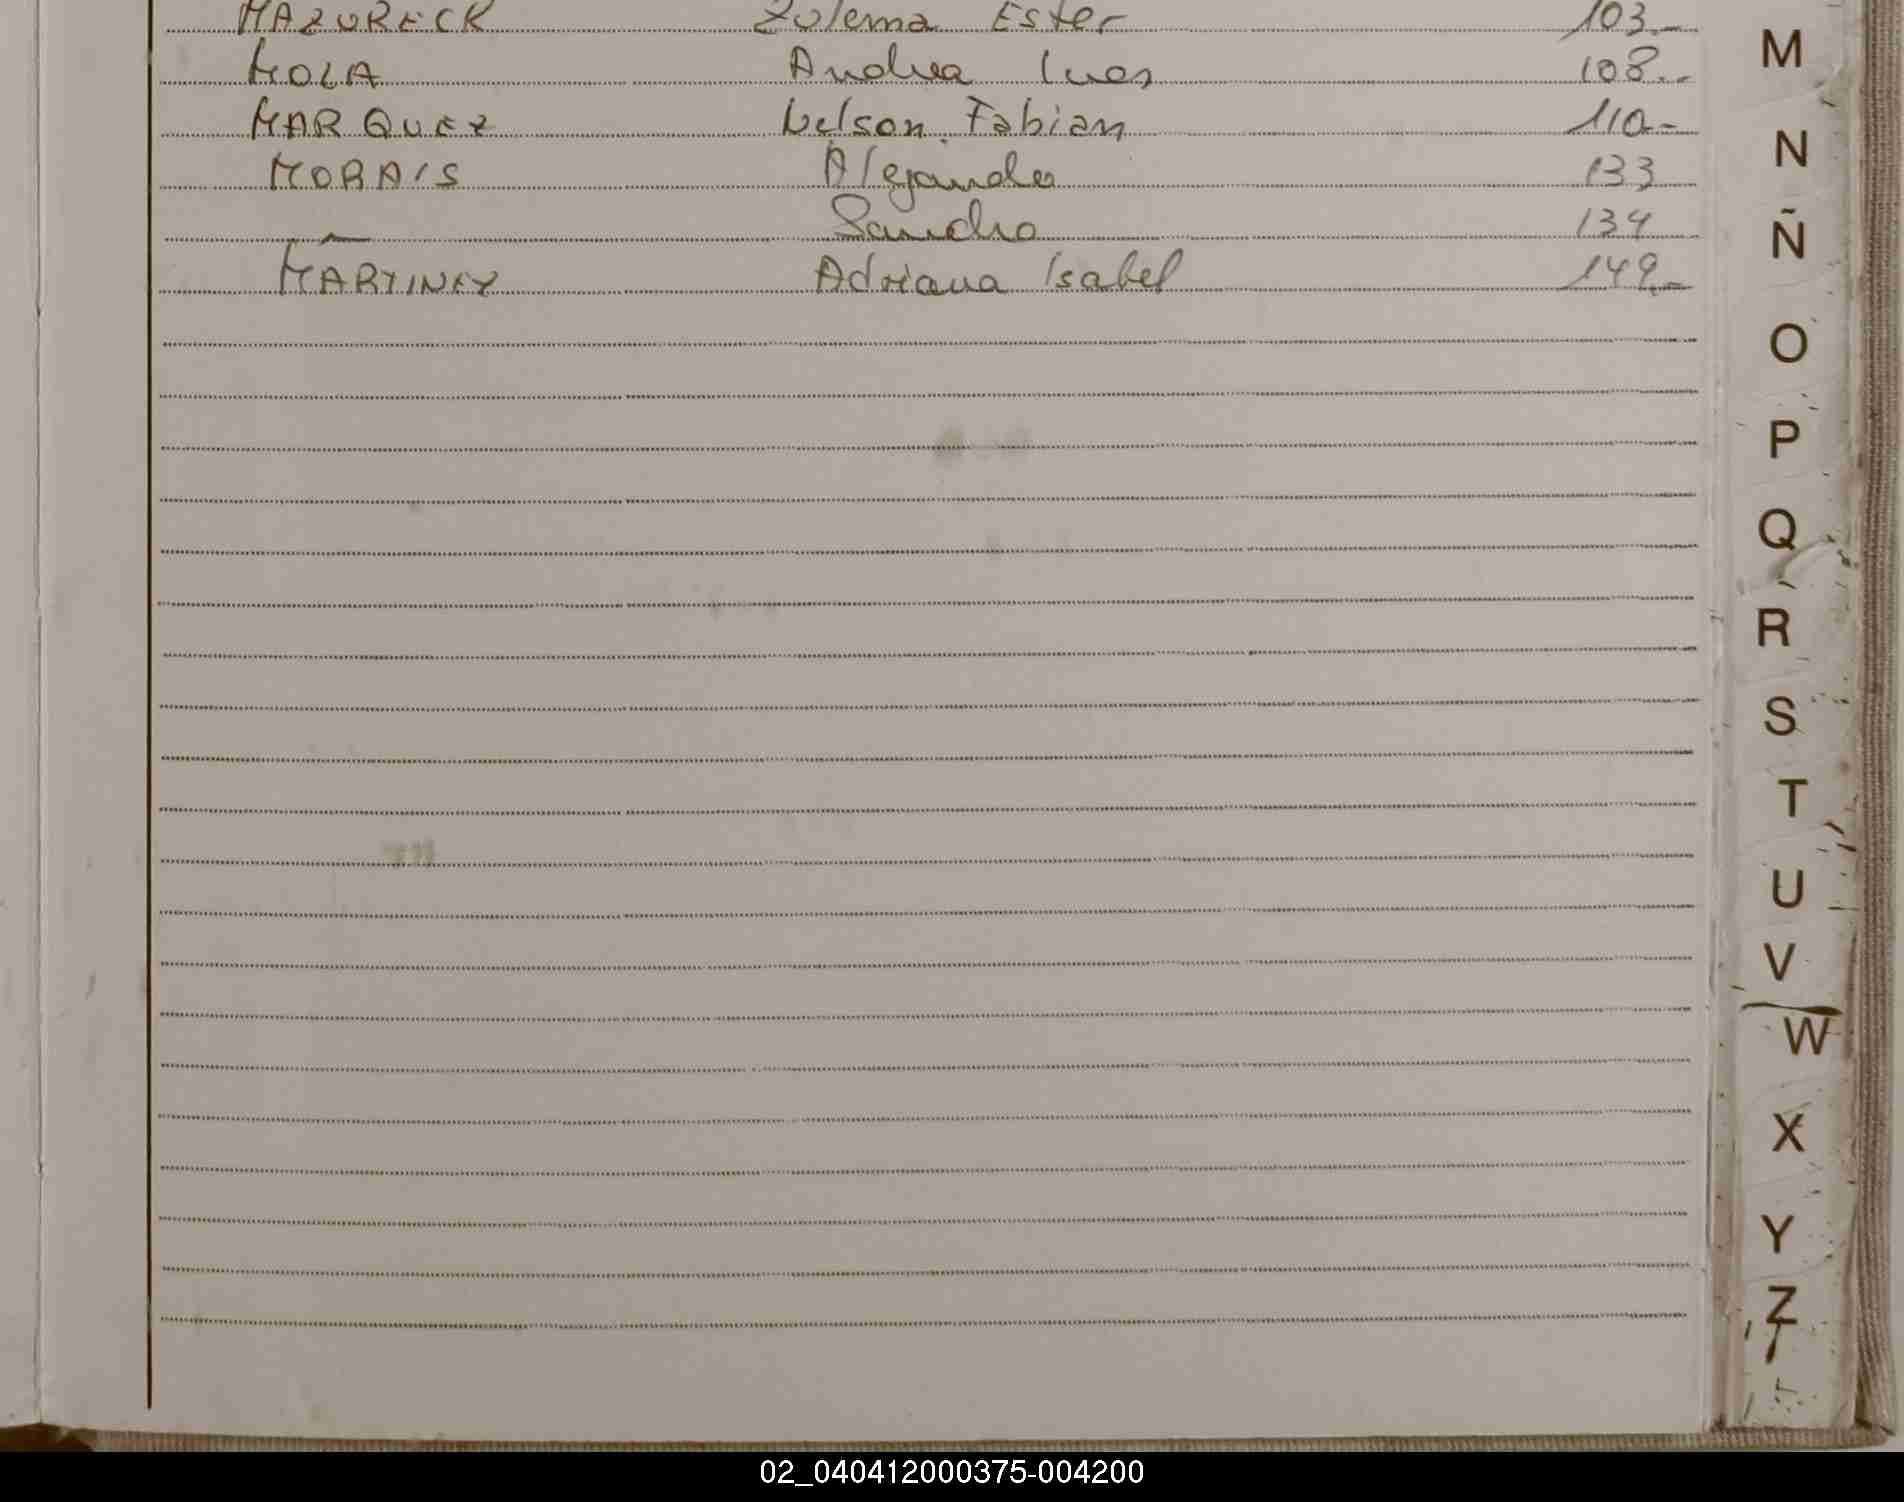 MAZURECK Zulema Ester 103.-
MOLA Andrea Ines 108.-
MARQUEZ Nelson Fabian 110.-
MORAIS Alejandro 133
— Sandro 134
MARTINEZ Adriana Isabel 149.-
M
N
Ñ
O
P
Q
R
S
T
U
V
W
X
Y
Z
02_040412000375-004200